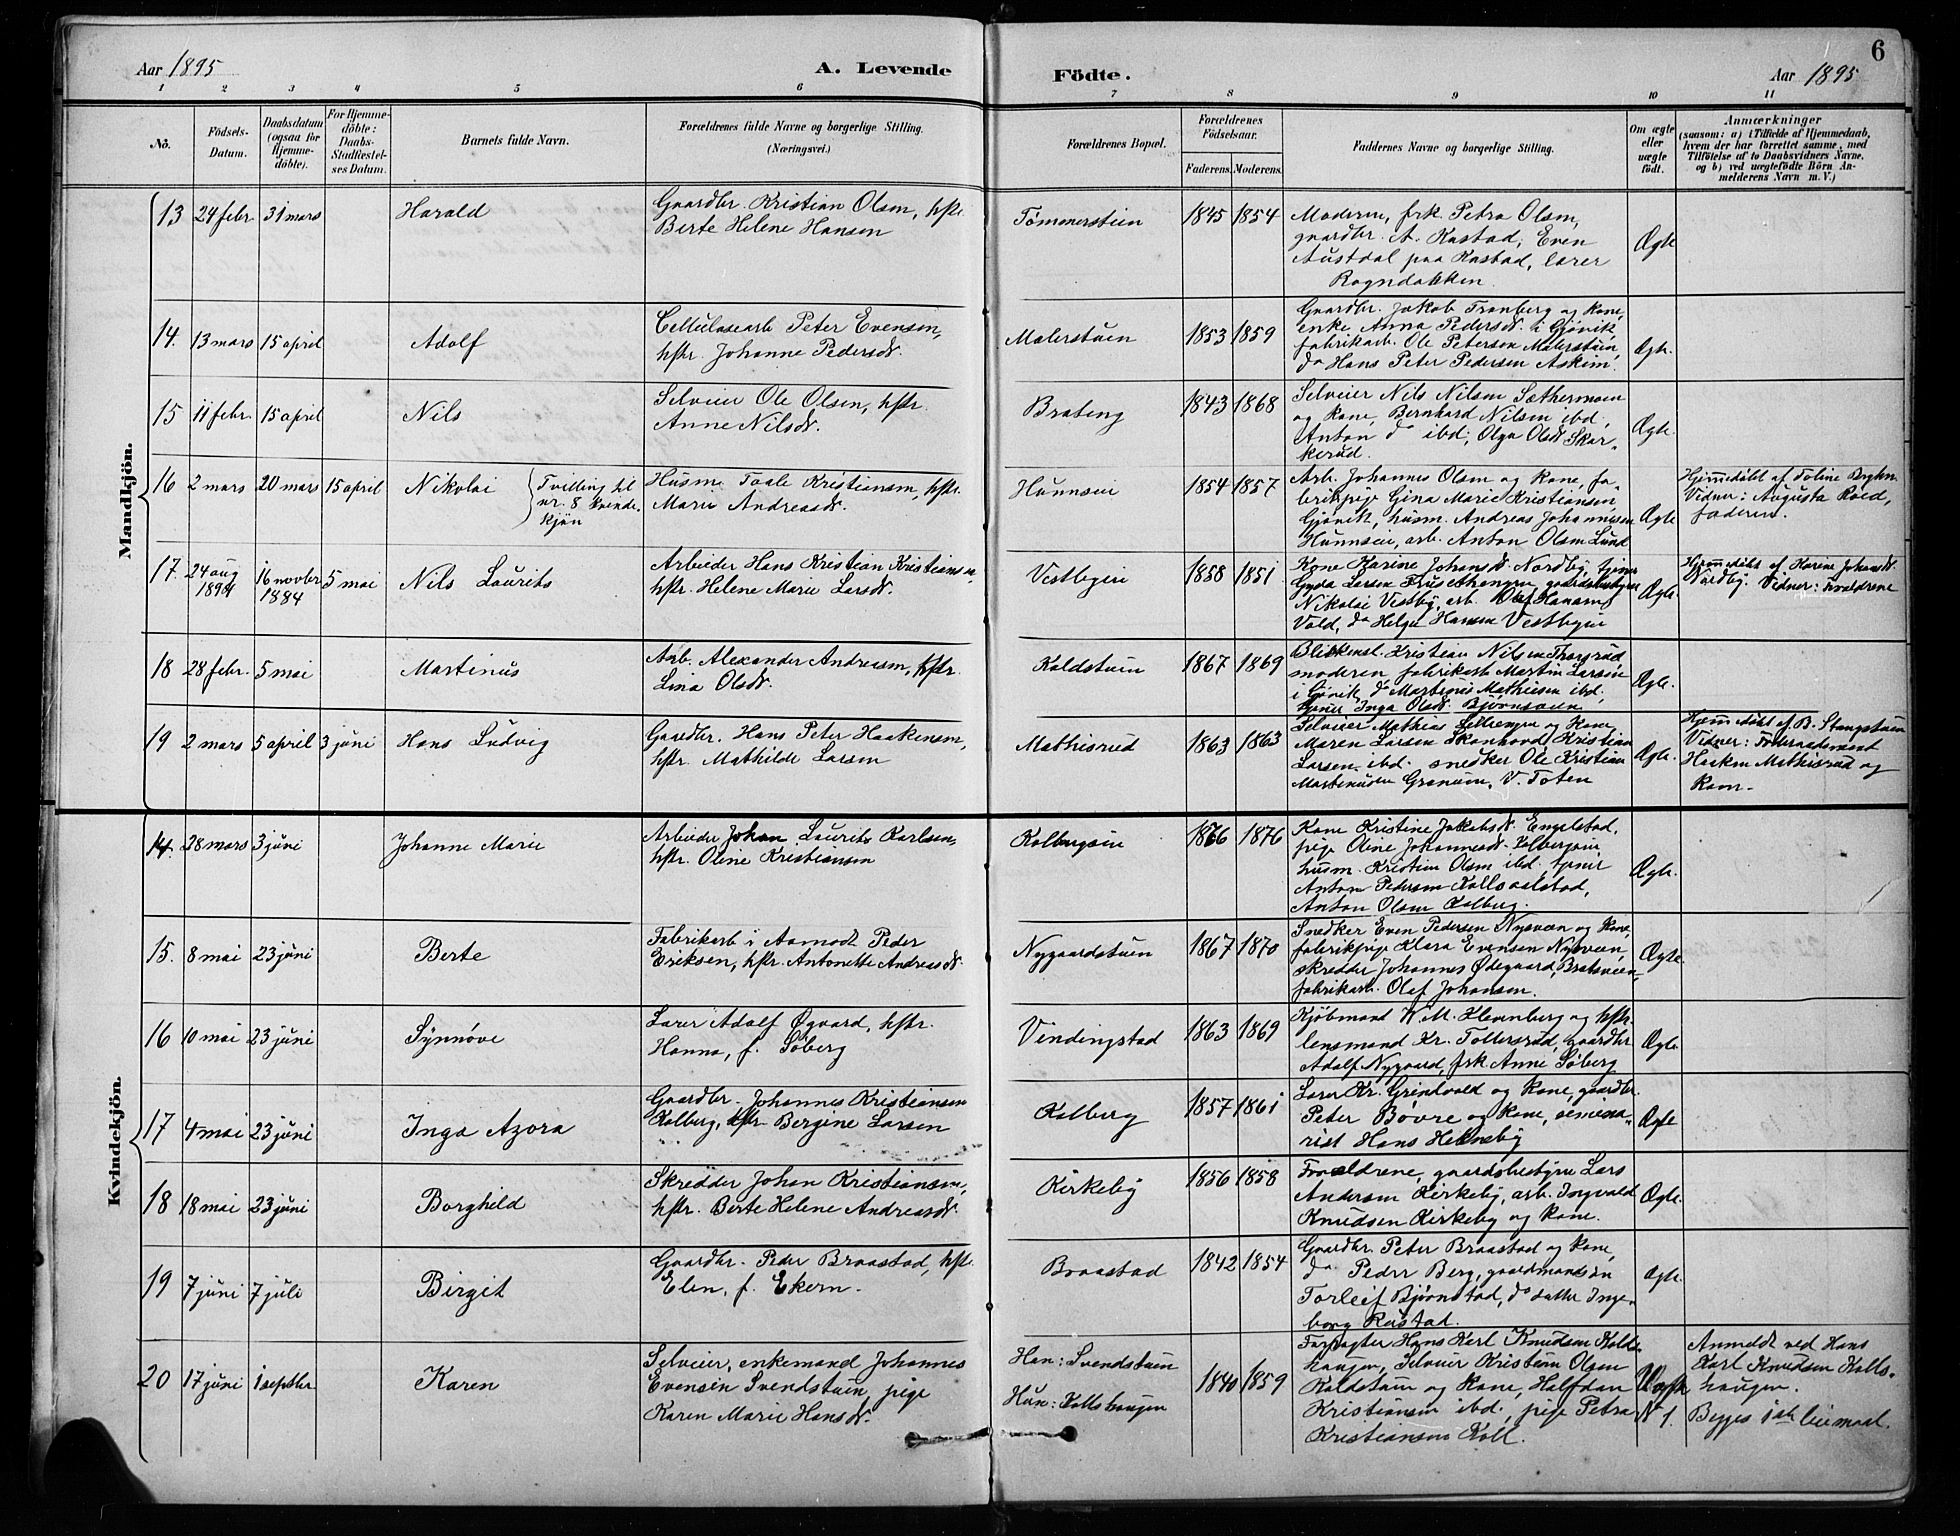 Aar 1895
A. Levende
Födte.
Aar 1895
6
1 2 3 4 5 6 7 8 9 10 11
No.
Födsels-
Datum.
Daabsdatum
(ogsaa for
Hjemme-
döbte).
For Hjemme-
döbte:
Daabs-
Stadfæstel-
ses Datum.
Barnets fulde Navn.
Forældrenes fulde Navne og borgerlige Stilling.
(Næringsvei.)
Forældrenes Bopæl.
Forældrenes
Födselsaar.
Faderens. Moderens.
Faddernes Navne og borgerlige Stilling.
Om ægte
eller
uægte
födt.
Anmærkninger
(saasom: a) i Tilfælde af Hjemmedaab,
hvem der har forrettet samme, med
Tilföielse af to Daabsvidners Navne,
og b) ved uægtefödte Börn An-
melderens Navn m. V.)
Mandkjön.
13 24 febr. 31 mars
Harald
Gaardbr. Kristian Olsen, hstr.
Berte Helene Hansen
Tømmerstuen
1845 1854
Moderen, frk. Petra Olsen,
gaardbr. A. Kastad, Even
Austdal paa Kastad, lærer
Rogndokken
Ægte
14. 13 mars 15 april
Adolf
Cellulosearb. Peter Evensen,
hstr. Johanne Pedersdt.
Malerstuen
1853 1859
Gaardbr. Jakob Tranberg og kone,
enke Anna Pedersdt. i Gjøvik,
fabrikarb. Ole Petersen Malerstuen,
do Hans Peter Pedersen Askim.
Ægte.
15 11 febr. 15 april
Nils
Selveier Ole Olsen, hstr.
Anne Nilsdt.
Brateng
1843 1868
Selveier Nils Nilsen Sæthermoen
og kone, Bernhard Nilsen ibd,
Anton do ibd, Olga Olsdt Skar-
kerud.
Ægte.
16 2 mars 20 mars 15 april
Nikolai
Tvilling til
nr. 8 kvinde-
kjøn
Husm. Taale Kristiansen, hstr.
Marie Andreasdt.
Hunnseie
1854 1857
Arb. Johannes Olsen og kone, fa-
brikpige Gina Marie Kristiansen,
Gjøvik, husm. Andreas Johannesen
Hunnseie, arb. Anton Olsen Lund
Ægte
Hjemmedøbt af Toline
Vidner: Augusta Roed,
faderen.
17. 24 aug 1894 16 novbr 1884 5 mai
Nils Laurits
Arbeider Hans Kristian Kristiansen,
hstr. Helene Marie Larsdt.
Vestbyeie
1858 1851
Kone Karine Johansdt Nordby, tjener
Gyda Larsen gaardsbestyrer
Nikolai Vestby, arb. Olaf Hansen
Vold, do Helge Hansen Vestbyeie
Ægte.
Hjemmedøbt af Karine Johansdt.
Nordby. Vidner: forældrene
18 28 febr. 5 mai
Martinus
Arb. Alexander Andreasen, hstr.
Lina Olsdt.
Koldstuen
1867 1869
Blikkensl. Kristian Nilsen Thorsrud
moderen, fabrikarb Martin Larsen
i Gjøvik, do Martinus Mathisen ibd,
tjener Inga Olsdt. Bjørnsveen
Ægte.
19 2 mars 5 april 3 juni
Hans Ludvig
Gaardbr. Hans Peter Haakensen,
hstr. Mathilde Larsen
Mathisrud
1863 1863
Selveier Mathias Lillieengen og kone,
Maren Larsen Skonhovd, Kristian
Larsen ibd. snedker Ole Kristian
Martinusen Granum, V. Toten
Ægte.
Hjemmedøbt af B. Stangstuen
Vidner: Føderaadsmand
Haaken Mathisrud og
kone.
Kvindekjön.
14. 28 mars 3 juni
Johanne Marie
Arbeider Johan Laurits Karlsen,
hstr. Oline Kristiansen
Kolbergseie
1866 1876
Kone Kristine Jakobsdt. Engelstad,
pige Oline Johannesdt. Kolbergseie,
husm. Kristian Olsen ibd. tjener
Anton Pedersen
Anton Olsen Kolberg.
Ægte.
15. 8 mai 23 juni
Berte
Fabrikarb i Aamodt Peder
Eriksen, hstr. Antonette Andreasdt.
Nygaardstuen
1867 1870
Snedker Even Pedersen Nysveen og kone,
fabrikpige Klara Evensen Nysveen,
skredder Johannes Ødegaard, Bratsveen,
fabrikarb. Olaf Johansen.
Ægte.
16 10 mai 23 juni
Synnøve
Lærer Adolf Øgaard, hstr.
Hanna, f. Søberg
Vindingstad
1863 1869
Kjøbmand W.M. Klevenberg og hstr
lensmand Kr. Tollersrud, gaardbr
Adolf Nygaard, frk. Anne Søberg
Ægte.
17 4 mai 23 juni
Inga Azora
Gaardbr. Johannes Kristiansen
Kolberg, hstr. Bergine Larsen
Kolberg
1857 1861
Lærer Kr. Grindvold og kone, gaardbr.
Peter Bøvre og kone, semina-
rist Hans Hekneby
Ægte
18 18 mai 23 juni
Borghild
Skredder Johan Kristiansen,
hstr. Berte Helene Andreasdt.
Kirkeby
1856 1858
Forældrene, gaardsbestyrer Lars
Andersen Kirkeby, arb. Ingvald
Knudsen Kirkeby og kone.
Ægte.
19 7 juni 7 juli
Birgit
Gaardbr. Peder Braastad, hstr.
Elen, f. Ekern.
Braastad
1842 1854
Gaardbr. Peter Braastad og kone,
do Peder Berg, gaardmandsøn
Torleif Bjørnstad, do datter Inge-
borg Rustad.
Ægte.
20 17 juni 1 septbr
Karen
Selveier, enkemand Johannes
Evensen Svendstuen, pige
Karen Marie Hansdt.
Han: Svendstuen
Hun: Kollshaugen
1840 1859
Forpagter Hans Karl Knudsen Kolls-
haugen, Selveier Kristian Olsen
Koldstuen og kone, Halfdan
Kristiansen ibd., pige Petra
Kristiansen Koll.
Uægte
N 1.
Anmeldt ved Hans
Karl Knudsen Kolls-
haugen.
Begges 1ste leiermaal.